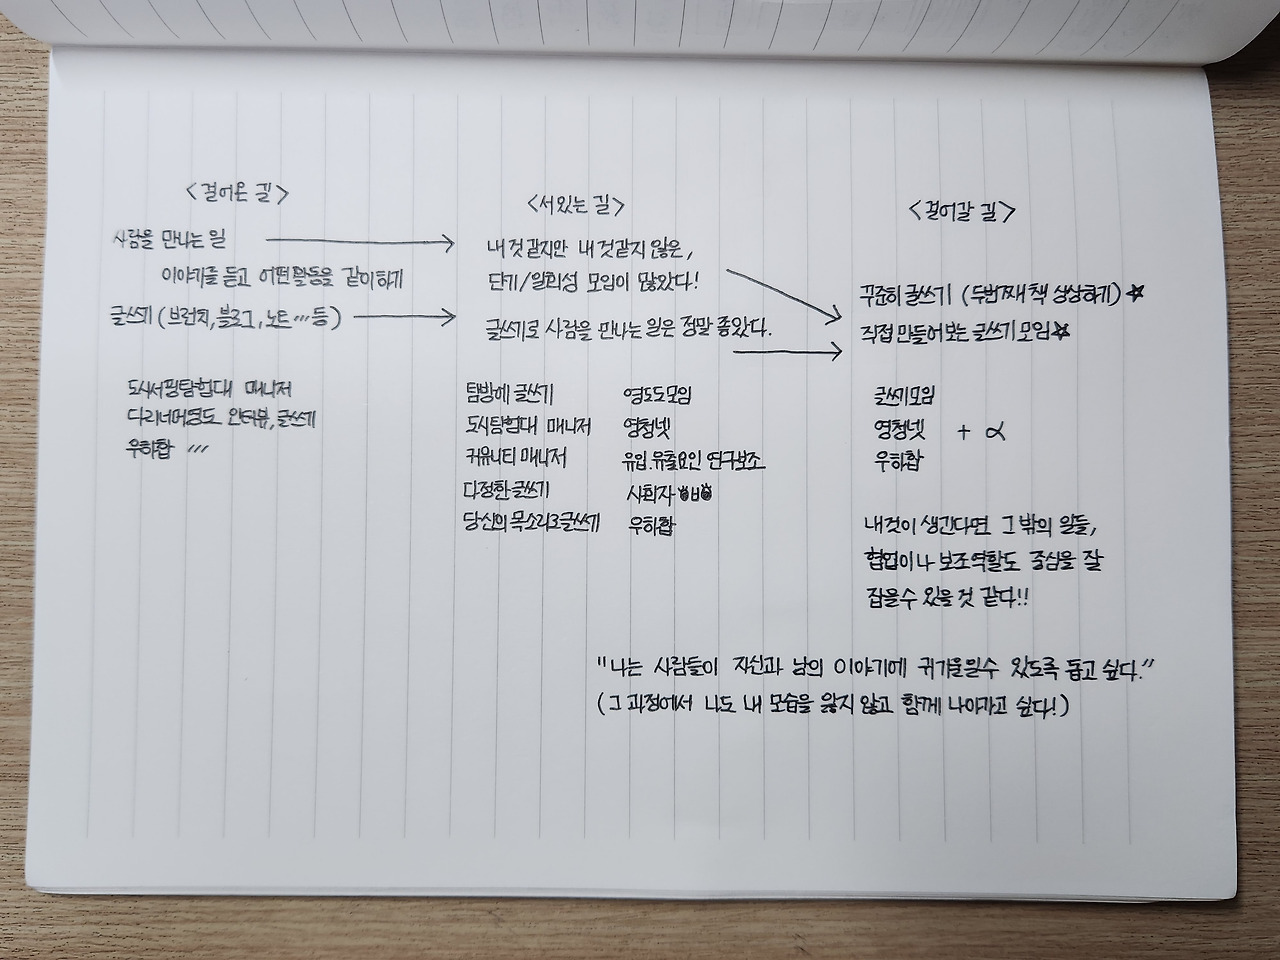 <걸어온 길>
사람을 만나는 일
이야기를 듣고 어떤 활동을 같이하기
글쓰기 (브런치, 블로그, 노트 … 등)
도시서핑탐험대 매니저
다리너머영도 인터뷰, 글쓰기
우하합 …
<서있는 길>
내 것 같지만 내 것같지 않은,
단기/일회성 모임이 많았다!
글쓰기로 사람을 만나는 일은 정말 좋았다.
탐방에 글쓰기
도시탐험대 매니저
커뮤니티 매니저
다정한 글쓰기
당신의 목소리3글쓰기
영도도모임
영청넷
유입.유출요인 연구보조
사회자
우하합
<걸어갈 길>
꾸준히 글쓰기 (두번째 책 상상하기) ☆
직접 만들어보는 글쓰기 모임 ☆
글쓰기모임
영청넷 + α
우하합
내것이 생긴다면 그 밖의 일들,
협업이나 보조역할도 중심을 잘
잡을수 있을 것 같다!!
"나는 사람들이 자신과 남의 이야기에 귀기울일수 있도록 돕고 싶다."
(그 과정에서 나도 내 모습을 잃지 않고 함께 나아가고 싶다!)